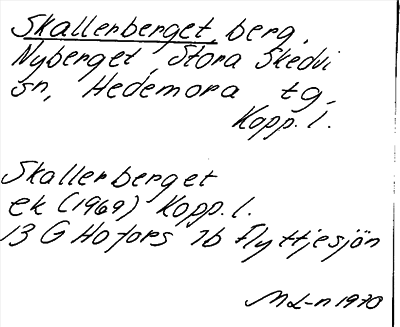 Skallerberget, berg,
Nyberget, Stora Skedvi
sn, Hedemora tg,
Kopp. l.
Skallerberget
ek (1969) Kopp. l.
13 G Hofors 7b Flyttjesjön
ML-n 1970